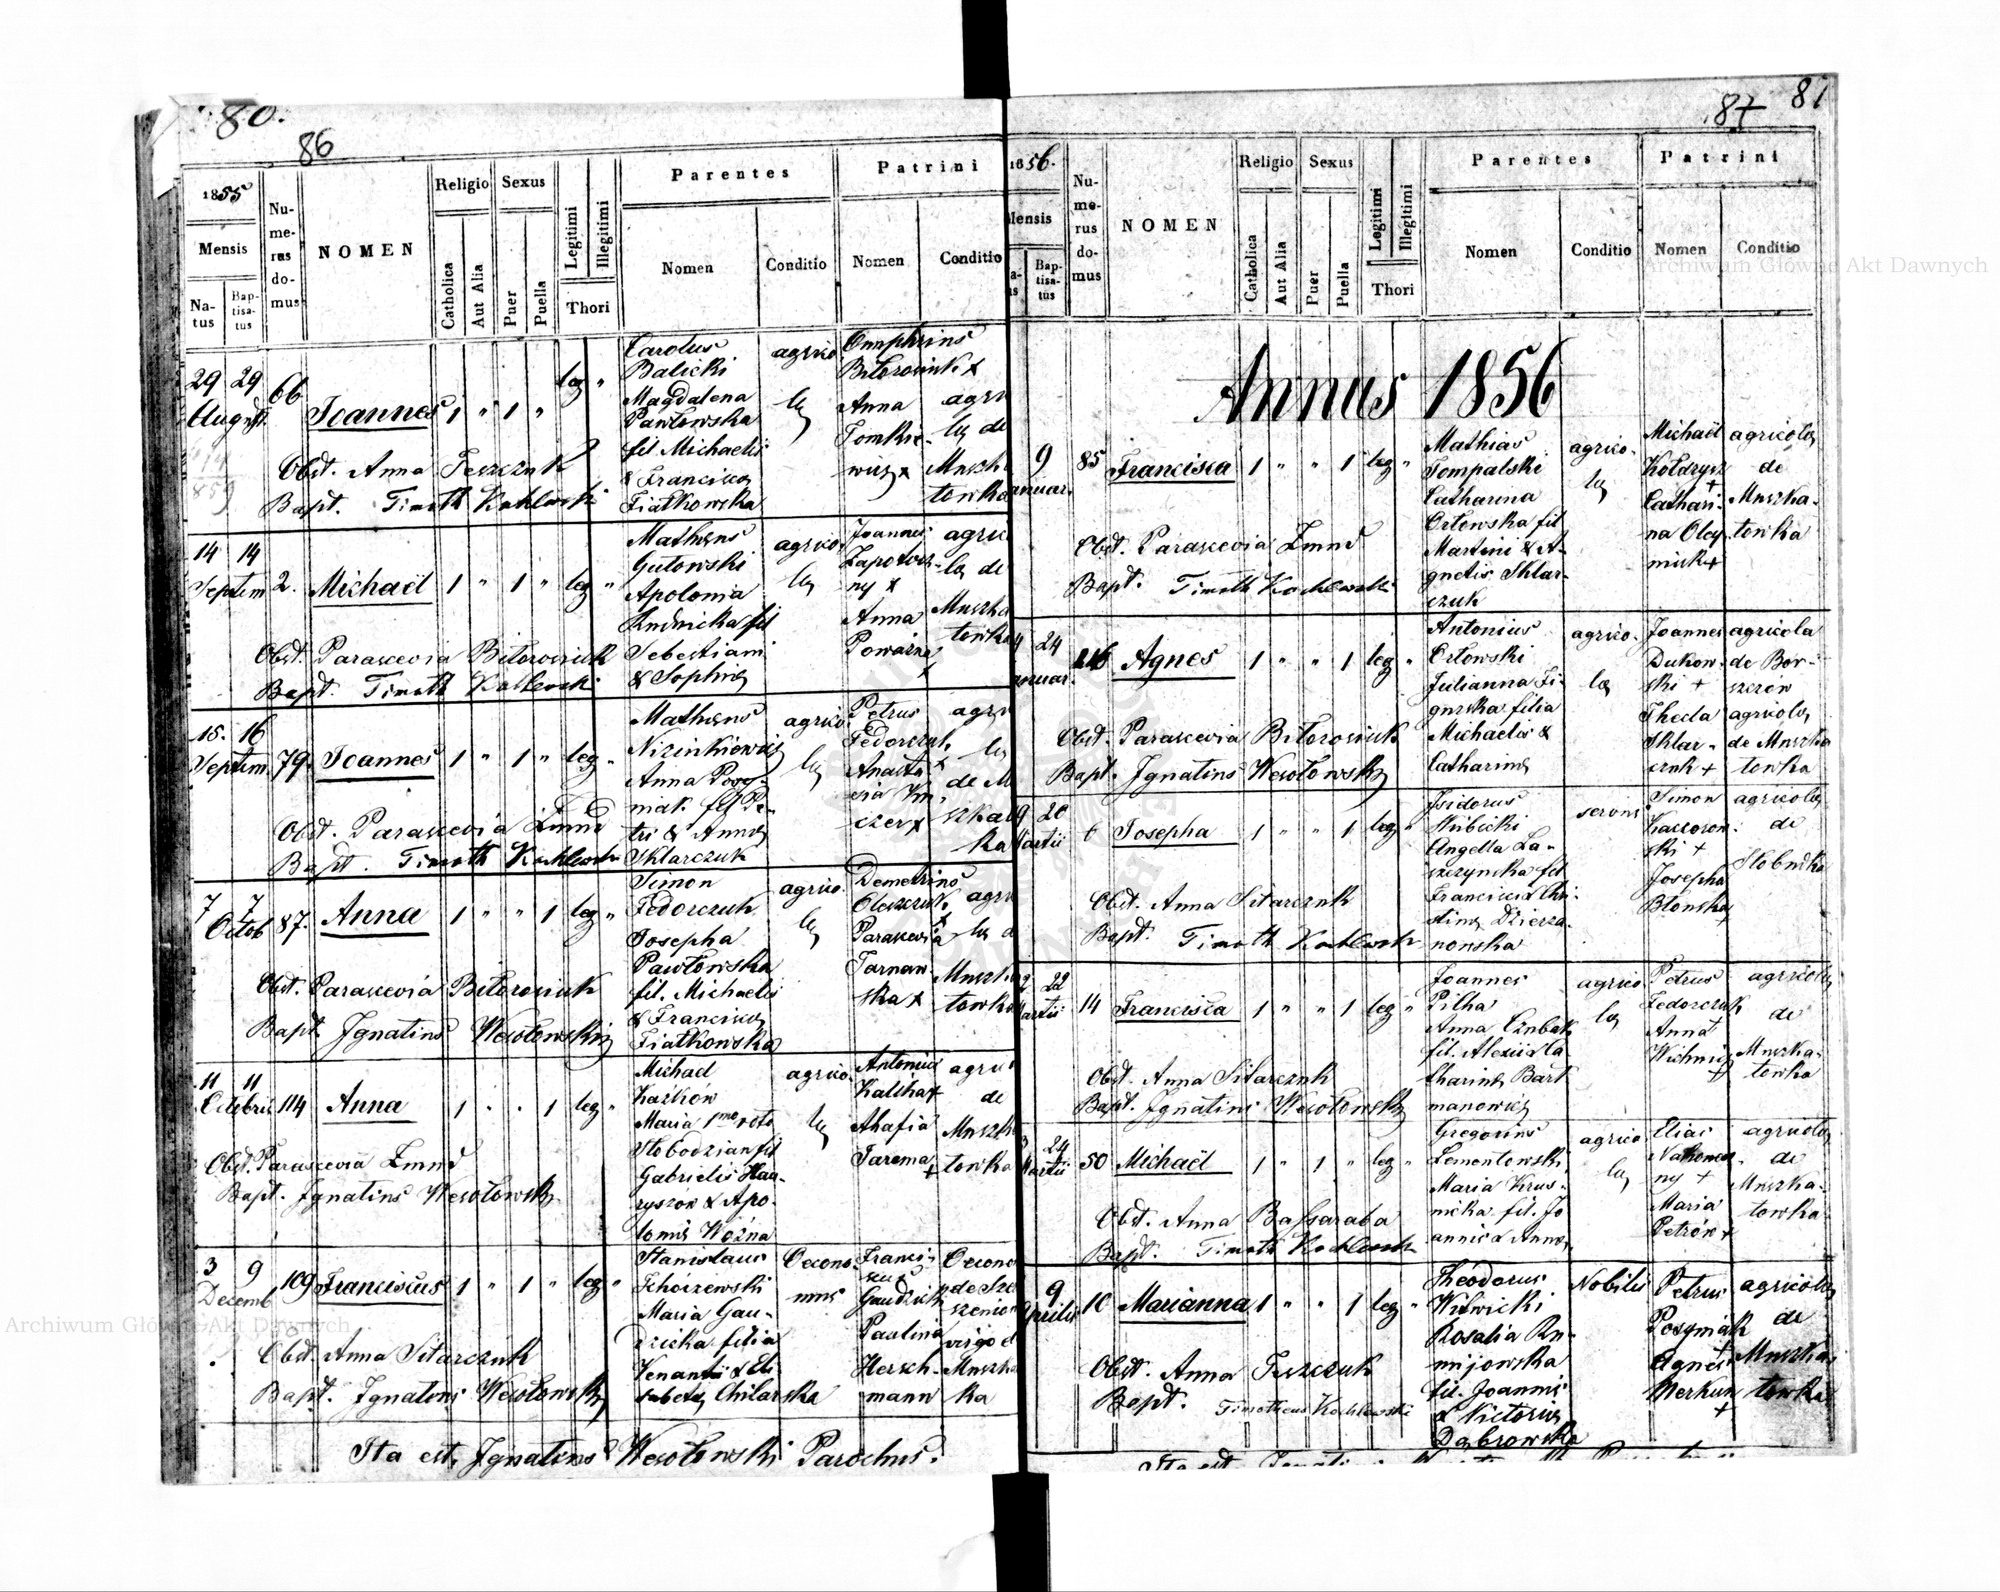 80.
86
1855
Mensis
Natus
Baptisatus
Numerus domus
NOMEN
Religio
Catholica
Aut Alia
Sexus
Puer
Puella
Legitimi
Illegitimi
Thori
Parentes
Nomen
Conditio
Patrini
Nomen
Conditio
29 29
August.
66
Joannes 1 " 1 " leg "
Carolus
Balicki
Magdalena
Pawłowska
fil Michaelis
& Francisca
Fiałkowska
agrico
la
Onuphrius
Bilorusiuk x
Anna
Tomkie-
wicz x
agri
la de
Muszka
towka
Obst. Anna Jeszczuk
Bapt. Timoth Kochlewski
14 14
Septem
2.
Michaël 1 " 1 " leg "
Matheus
Gutowski
Apolonia
Rudnicka fil
Sebestiani
& Sophia
agrico
la
Joannes
Zapotocz-
ny x
Anna
Poważna
x
agric
la de
Muszka
towka
Obst. Parascevia Bilorusiuk
Bapt. Timoth Kochlewski
15. 16
Septem
79.
Joannes 1 " 1 " leg "
Matheus
Nizinkiewicz
Anna Posy-
niak fil Pe-
tri & Anna
Sklarczuk
agrico
la
Petrus
Fedorczuk
x
agri
la
de M
szkato
ka
Obst. Parascevia Zmud
Bapt. Timoth Kochlewski
7 7
Octob
87.
Anna 1 " " 1 leg "
Simon
Fedorczuk
Josepha
Pawłowska
fil. Michaelis
& Francisca
Fiałkowska
agrico
la
Demetrius
Oleszczuk
x
Parascevia
Tarnaw
ska x
agri
la d
Muszka
towka
Obst. Parascevia Bilorusiuk
Bapt. Ignatius Wesołowski
11 11
Octobris
114
Anna 1 " " 1 leg "
Michael
Kaźków
Maria 1mo voto
Słobodzian fil
Gabrielis Hau-
ryszow & Apo-
lonia Woźna
agrico
la
Antonius
Kalicha x
Ahafia
Jarema
+
agri
de
Muszka
towka
Obst. Parascevia Zmud
Bapt. Ignatius Wesołowski
3 9
Decemb
109
Franciscus 1 " 1 " leg "
Stanislaus
Tchórzewski
Maria Gau-
dzicka filia
Venantii & Eli
sabeta Chilarska
Oecono
mus
Franci-
scus
Gaudzicki
Paulina
Hersch-
mann
Oecono
virgo d
Muszka
ka
Obst. Anna Sitarczuk
Bapt. Ignatius Wesołowski
Ita est, Ignatius Wesołowski Parochus.
87 81
1856.
Mensis
Baptisatus
Numerus domus
NOMEN
Religio
Catholica
Aut Alia
Sexus
Puer
Puella
Legitimi
Illegitimi
Thori
Parentes
Nomen
Conditio
Patrini
Nomen
Conditio
Annus 1856
9
anuar.
85
Francisca 1 " " 1 leg "
Mathias
Tompalski
Catharina
Orłowska fil
Martini & A-
gnetis Sklar-
czuk
agrico-
la
Michaël
Kołdrysz
+
Cathari-
na Oley
niuk +
agricola
de
Muszka-
towka
Obst. Parascevia Zmud
Bapt. Timoth Kochlewski
24
anuar.
Agnes 1 " " 1 leg "
Antonius
Orłowski
Julianna Fi-
gurska filia
Michaelis &
Catharina
agrico-
la
Joannes
Dukow-
ski +
Thecla
Sklar-
czuk +
agricola
de Bor-
szczów
agricola
de Muszka
towka
Obst. Parascevia Bilorusiuk
Bapt. Ignatius Wesołowski
20
artii
6
Josepha 1 " " 1 leg "
Isidorus
Wibicki
Angella La-
szczynska fil
Francisci & Chri-
stina Dzierża-
nowska
Simon
Kaczorow-
ski +
Josepha
Błonska
+
agricola
de
Słobudka
Obst. Anna Sitarczuk
Bapt. Timoth Kochlewski
22
artii
14
Francisca 1 " " 1 leg "
Joannes
Pilha
Anna Czubak
fil. Alexii & Ca
tharina Bart
manowicz
agrico
la
Petrus
Fedorczuk
+
Anna
+
agricola
de
Muszka-
towka
Obst. Anna Sitarczuk
Bapt. Ignatius Wesołowski
24
Martii
50
Michaël 1 " 1 " leg "
Gregorius
Lementowski
Maria Krus-
nicka fil. Jo
annis & Anna
agrico
la
Elias
ny +
Maria
Petrów +
agricola
de
Muszka-
towka
Obst. Anna Bassaraba
Bapt. Timoth Kochlewski
9
Aprilis
10
Marianna 1 " " 1 leg "
Theodorus
Witwicki
Rosalia Ru-
mijowska
fil. Joannis
& Victoria
Dąbrowska
Nobilis
Petrus
Posyniak
+
Agnes
Merkun
+
agricola
de
Muszka
towka
Obst. Anna Jeszczuk
Bapt. Timotheus Kochlewski
Archiwum Główne Akt Dawnych
Archiwum Główne Akt Dawnych